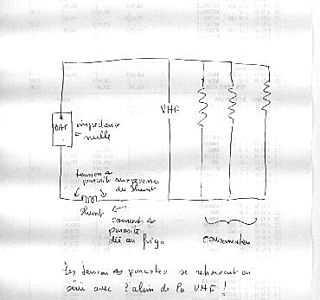 VHF
impédance
nulle
tension
parasite aux bornes
du Shunt
Shunt
courant
parasite
dû au frigo
consommateurs
Les tensions parasites se retrouvent en
série avec l'alim de la VHF !